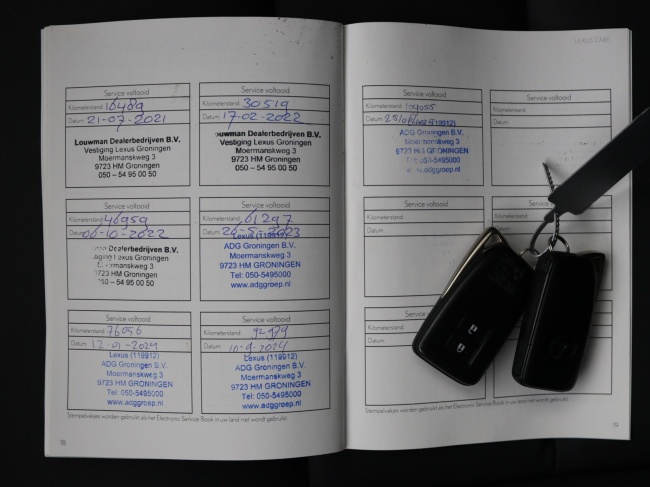 LEXUS CARE
Service voltooid
Kilometerstand 16489
Datum 21-07-2021
Louwman Dealerbedrijven B.V.
Vestiging Lexus Groningen
Moermanskweg 3
9723 HM Groningen
050 – 54 95 00 50
Service voltooid
Kilometerstand 30519
Datum 17-02-2022
Louwman Dealerbedrijven B.V.
Vestiging Lexus Groningen
Moermanskweg 3
9723 HM Groningen
050 – 54 95 00 50
Service voltooid
Kilometerstand 46959
Datum 06-10-2022
Dealerbedrijven B.V.
Lexus Groningen
Moermanskweg 3
9723 HM Groningen
50 – 54 95 00 50
Service voltooid
Kilometerstand 61297
Datum 26-5-2023
Lexus (119912)
ADG Groningen B.V.
Moermanskweg 3
9723 HM GRONINGEN
Tel: 050-5495000
www.adggroep.nl
Service voltooid
Kilometerstand 76056
Datum 12-01-2024
Lexus (119912)
ADG Groningen B.V.
Moermanskweg 3
9723 HM GRONINGEN
Tel: 050-5495000
www.adggroep.nl
Service voltooid
Kilometerstand 92979
Datum 10-9-2024
Lexus (119912)
ADG Groningen B.V.
Moermanskweg 3
9723 HM GRONINGEN
Tel: 050-5495000
www.adggroep.nl
Stempelvakjes worden gebruikt als het Electronic Service Book in uw land niet wordt gebruikt.
18
Service voltooid
Kilometerstand
Datum
ADG Groningen B.V.
9723 HM GRONINGEN
Tel: 050-5495000
Service voltooid
Kilometerstand
Service voltooid
Kilometerstand
Datum
Service voltooid
Kilometerstand
Datum
Stempelvakjes worden gebruikt als het Electronic Service Book in uw land niet wordt gebruikt.
19